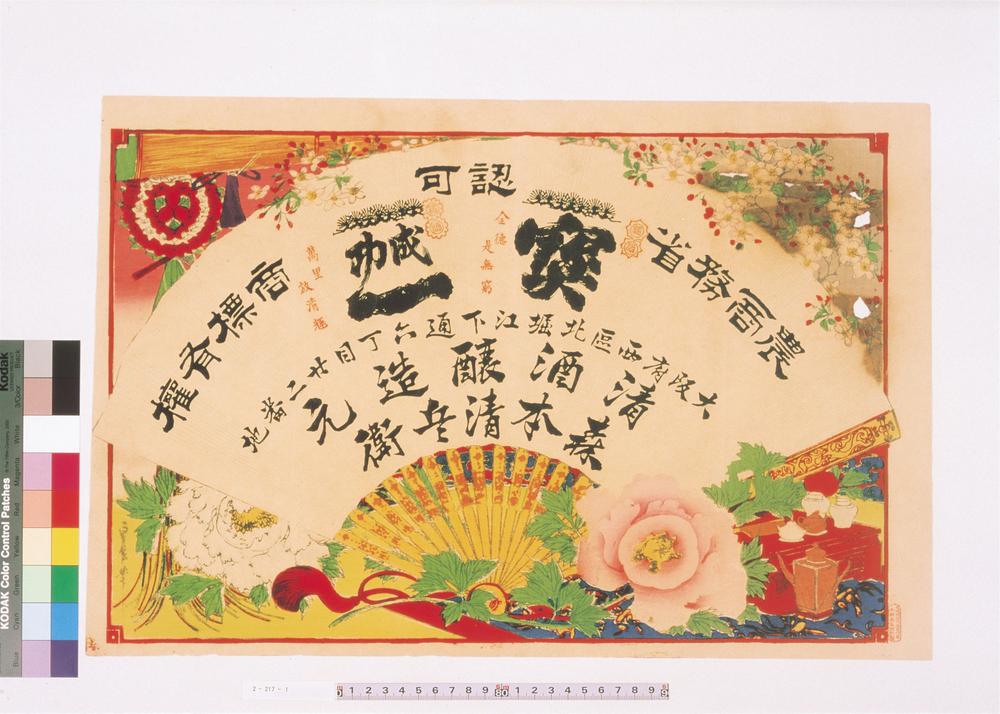 農商務省
認可
商標有權
寳
成功
一
全德
是無窮
萬里
大阪府西區北堀江下通六丁目廿二番地
清酒醸造元
森本清兵衛
2-217-1
Kodak
KODAK Color Control Patches
Blue
Cyan
Green
Yellow
Red
Magenta
White
3/Color
Black
1 2 3 4 5 6 7 8 9 1 2 3 4 5 6 7 8 9